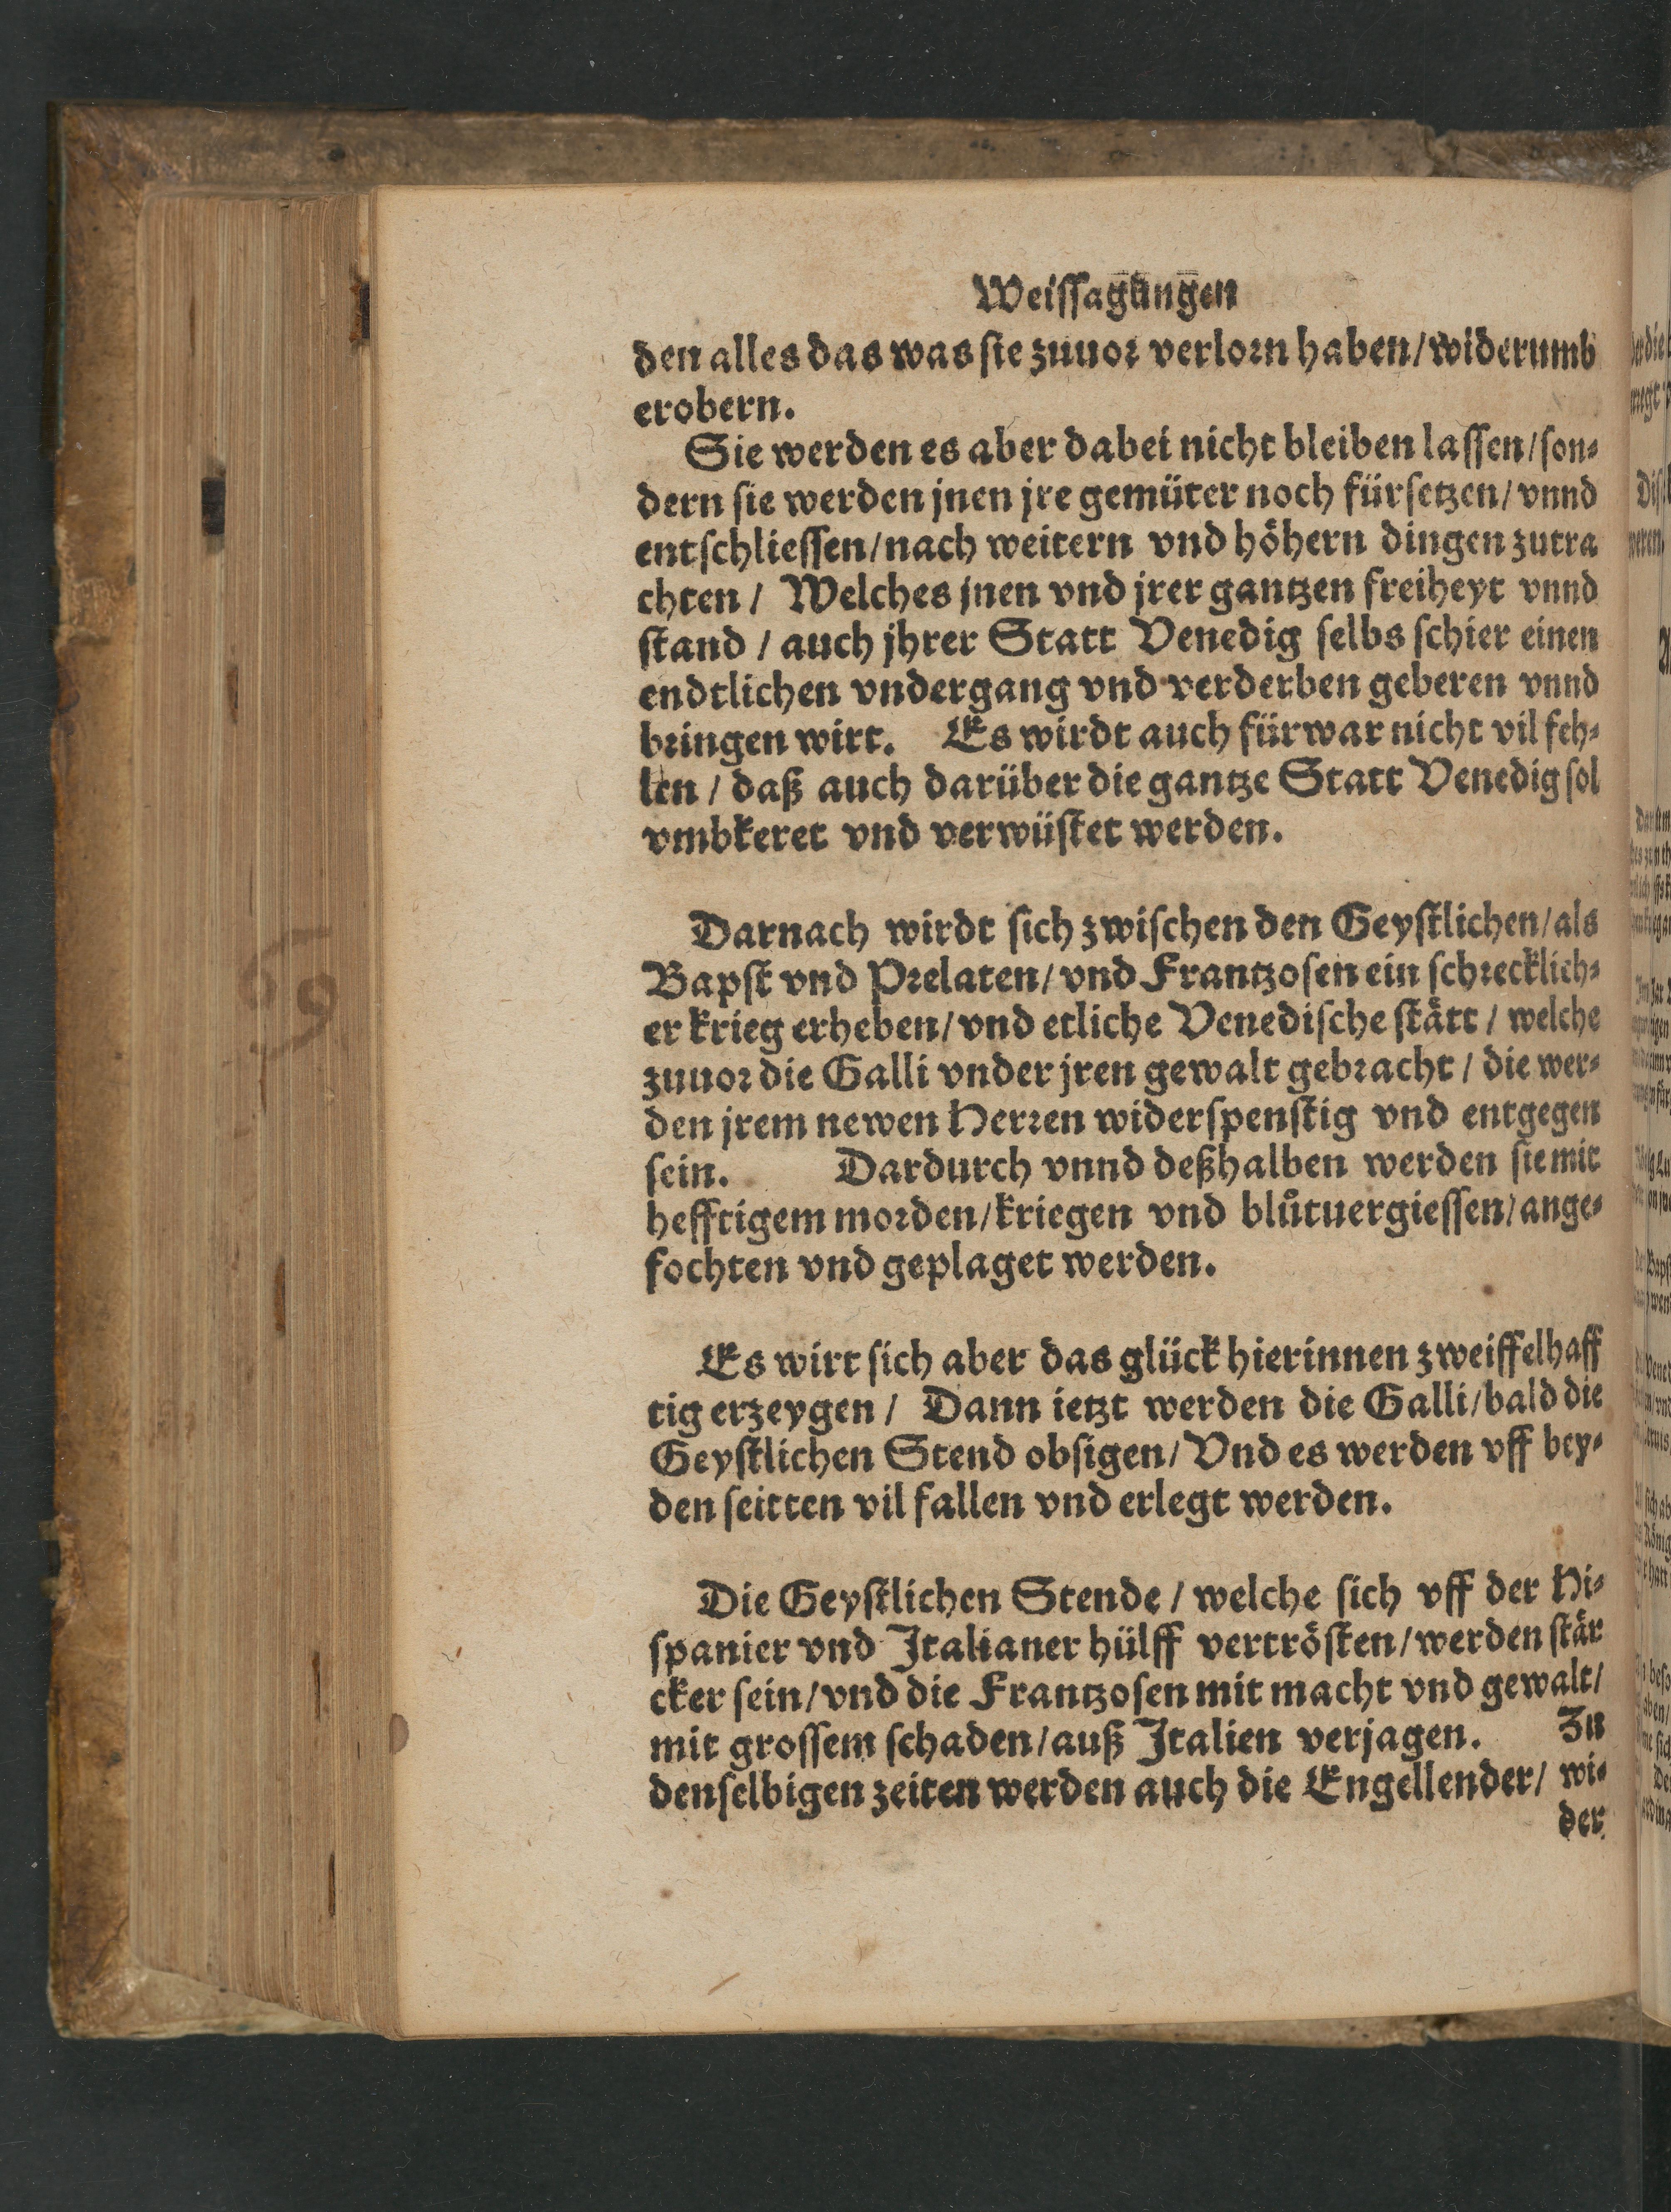 Weissagungen
den alles das was sie zuuor verlorn haben/ widerumb
erobern.
Sie werden es aber dabei nicht bleiben lassen/ son⸗
dern sie werden jnen jre gemüter noch fürsetzen/ vnnd
entschliessen/ nach weitern vnd höhern dingen zutra
chten/ Welches jnen vnd jrer gantzen freiheyt vnnd
stand/ auch jhrer Statt Venedig selbs schier einen
endtlichen vndergang vnd verderben geberen vnnd
bringen wirt. Es wirdt auch fürwar nicht vil feh⸗
len/ daß auch darüber die gantze Statt Venedig sol
vmbkeret vnd verwüstet werden.
Darnach wirdt sich zwischen den Geystlichen/ als
Bapst vnd Prelaten/ vnd Frantzosen ein schrecklich⸗
er krieg erheben/ vnd etliche Venedische stätt/ welche
zuuor die Galli vnder jren gewalt gebracht/ die wer⸗
den jrem newen Herren widerspenstig vnd entgegen
sein. Dardurch vnnd deßhalben werden sie mit
hefftigem morden/ kriegen vnd blůtuergiessen/ ange⸗
fochten vnd geplaget werden.
Es wirt sich aber das glück hierinnen zweiffelhaff
tig erzeygen/ Dann ietzt werden die Galli/ bald die
Geystlichen Stend obsigen/ Vnd es werden vff bey⸗
den seitten vil fallen vnd erlegt werden.
Die Geystlichen Stende/ welche sich vff der Hi⸗
spanier vnd Italianer hülff vertrösten/ werden stär
cker sein/ vnd die Frantzosen mit macht vnd gewalt/
mit grossem schaden/ auß Italien verjagen. Zu
denselbigen zeiten werden auch die Engellender/ wi⸗
der